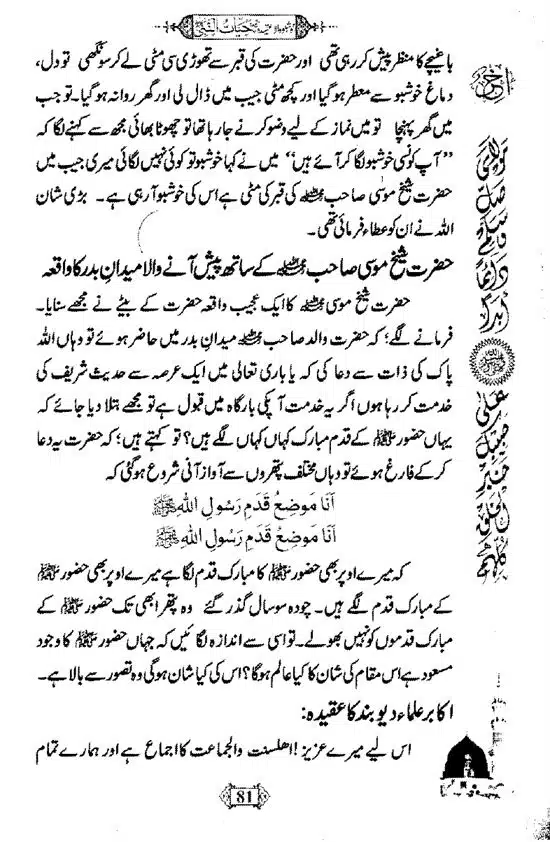 حیات النبی ﷺ
باغیچے کا منظر پیش کر رہی تھی اور حضرت کی قبر سے تھوڑی سی مٹی لے کر سونگھی تو دل،
دماغ خوشبو سے معطر ہو گیا اور کچھ مٹی جیب میں ڈال لی اور گھر روانہ ہو گیا۔ تو جب
میں گھر پہنچا تو میں نماز کے لیے وضو کرنے جا رہا تھا تو چھوٹا بھائی مجھ سے کہنے لگا کہ
”آپ کونسی خوشبو لگا کر آئے ہیں“ میں نے کہا خوشبو تو کوئی نہیں لگائی میری جیب میں
حضرت شیخ موسیٰ صاحب رحمہ اللہ کی قبر کی مٹی ہے اس کی خوشبو آ رہی ہے۔ بڑی شان
اللہ نے ان کو عطاء فرمائی تھی۔
حضرت شیخ موسیٰ صاحب رحمہ اللہ کے ساتھ پیش آنے والا میدانِ بدر کا واقعہ
حضرت شیخ موسیٰ رحمہ اللہ کا ایک عجیب واقعہ حضرت کے بیٹے نے مجھے سنایا۔
فرمانے لگے؛ کہ حضرت والد صاحب رحمہ اللہ میدانِ بدر میں حاضر ہوئے تو وہاں اللہ
پاک کی ذات سے دعا کی کہ یا باری تعالیٰ میں ایک عرصہ سے حدیث شریف کی
خدمت کر رہا ہوں اگر یہ خدمت آپکی بارگاہ میں قبول ہے تو مجھے بتلا دیا جائے کہ
یہاں حضور ﷺ کے قدم مبارک کہاں کہاں لگے ہیں؟ تو کہتے ہیں؛ کہ حضرت یہ دعا
کر کے فارغ ہوئے تو وہاں مختلف پتھروں سے آواز آنی شروع ہو گئی کہ
اَنَا مَوْضِعُ قَدَمِ رَسُوْلِ اللهِ ﷺ
اَنَا مَوْضِعُ قَدَمِ رَسُوْلِ اللهِ ﷺ
کہ میرے اوپر بھی حضور ﷺ کا مبارک قدم لگا ہے میرے اوپر بھی حضور ﷺ
کے مبارک قدم لگے ہیں۔ چودہ سو سال گذر گئے وہ پتھر ابھی تک حضور ﷺ کے
مبارک قدموں کو نہیں بھولے۔ تو اسی سے اندازہ لگائیں کہ جہاں حضور ﷺ کا وجود
مسعود ہے اس مقام کی شان کا کیا عالم ہوگا؟ اس کی کیا شان ہوگی وہ تصور سے بالا ہے۔
اکابر علماء دیوبند کا عقیدہ:
اس لیے میرے عزیز! اھلسنت والجماعت کا اجماع ہے اور ہمارے تمام
81
مولای صل وسلم دائما ابدا
علی حبیبک خیر الخلق کلھم